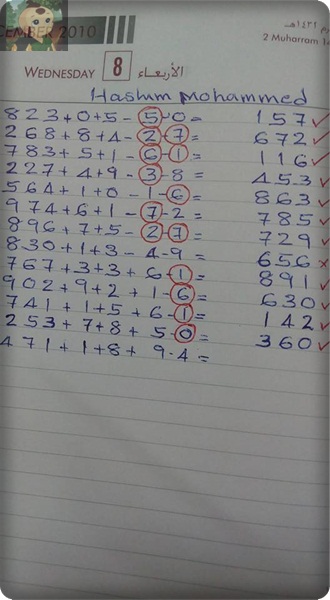 CEMBER 2010
2 Muharram 1
WEDNESDAY 8 الأربعاء
Hashim Mohammed
823+0+5-5-0= 157✓
268+8+4-2-7= 672✓
783+5+1-6-1= 116✓
227+4+9-3-8= 453✓
564+1+0-1-6= 863✓
974+6+1-7-2= 785✓
896+7+5-2-7= 729✓
830+1+3-4-9= 656×
767+3+3+6-1= 891✓
902+9+2+1-6= 630✓
741+1+5+6-1= 142✓
253+7+8+5-0= 360✓
471+1+8+9-4=